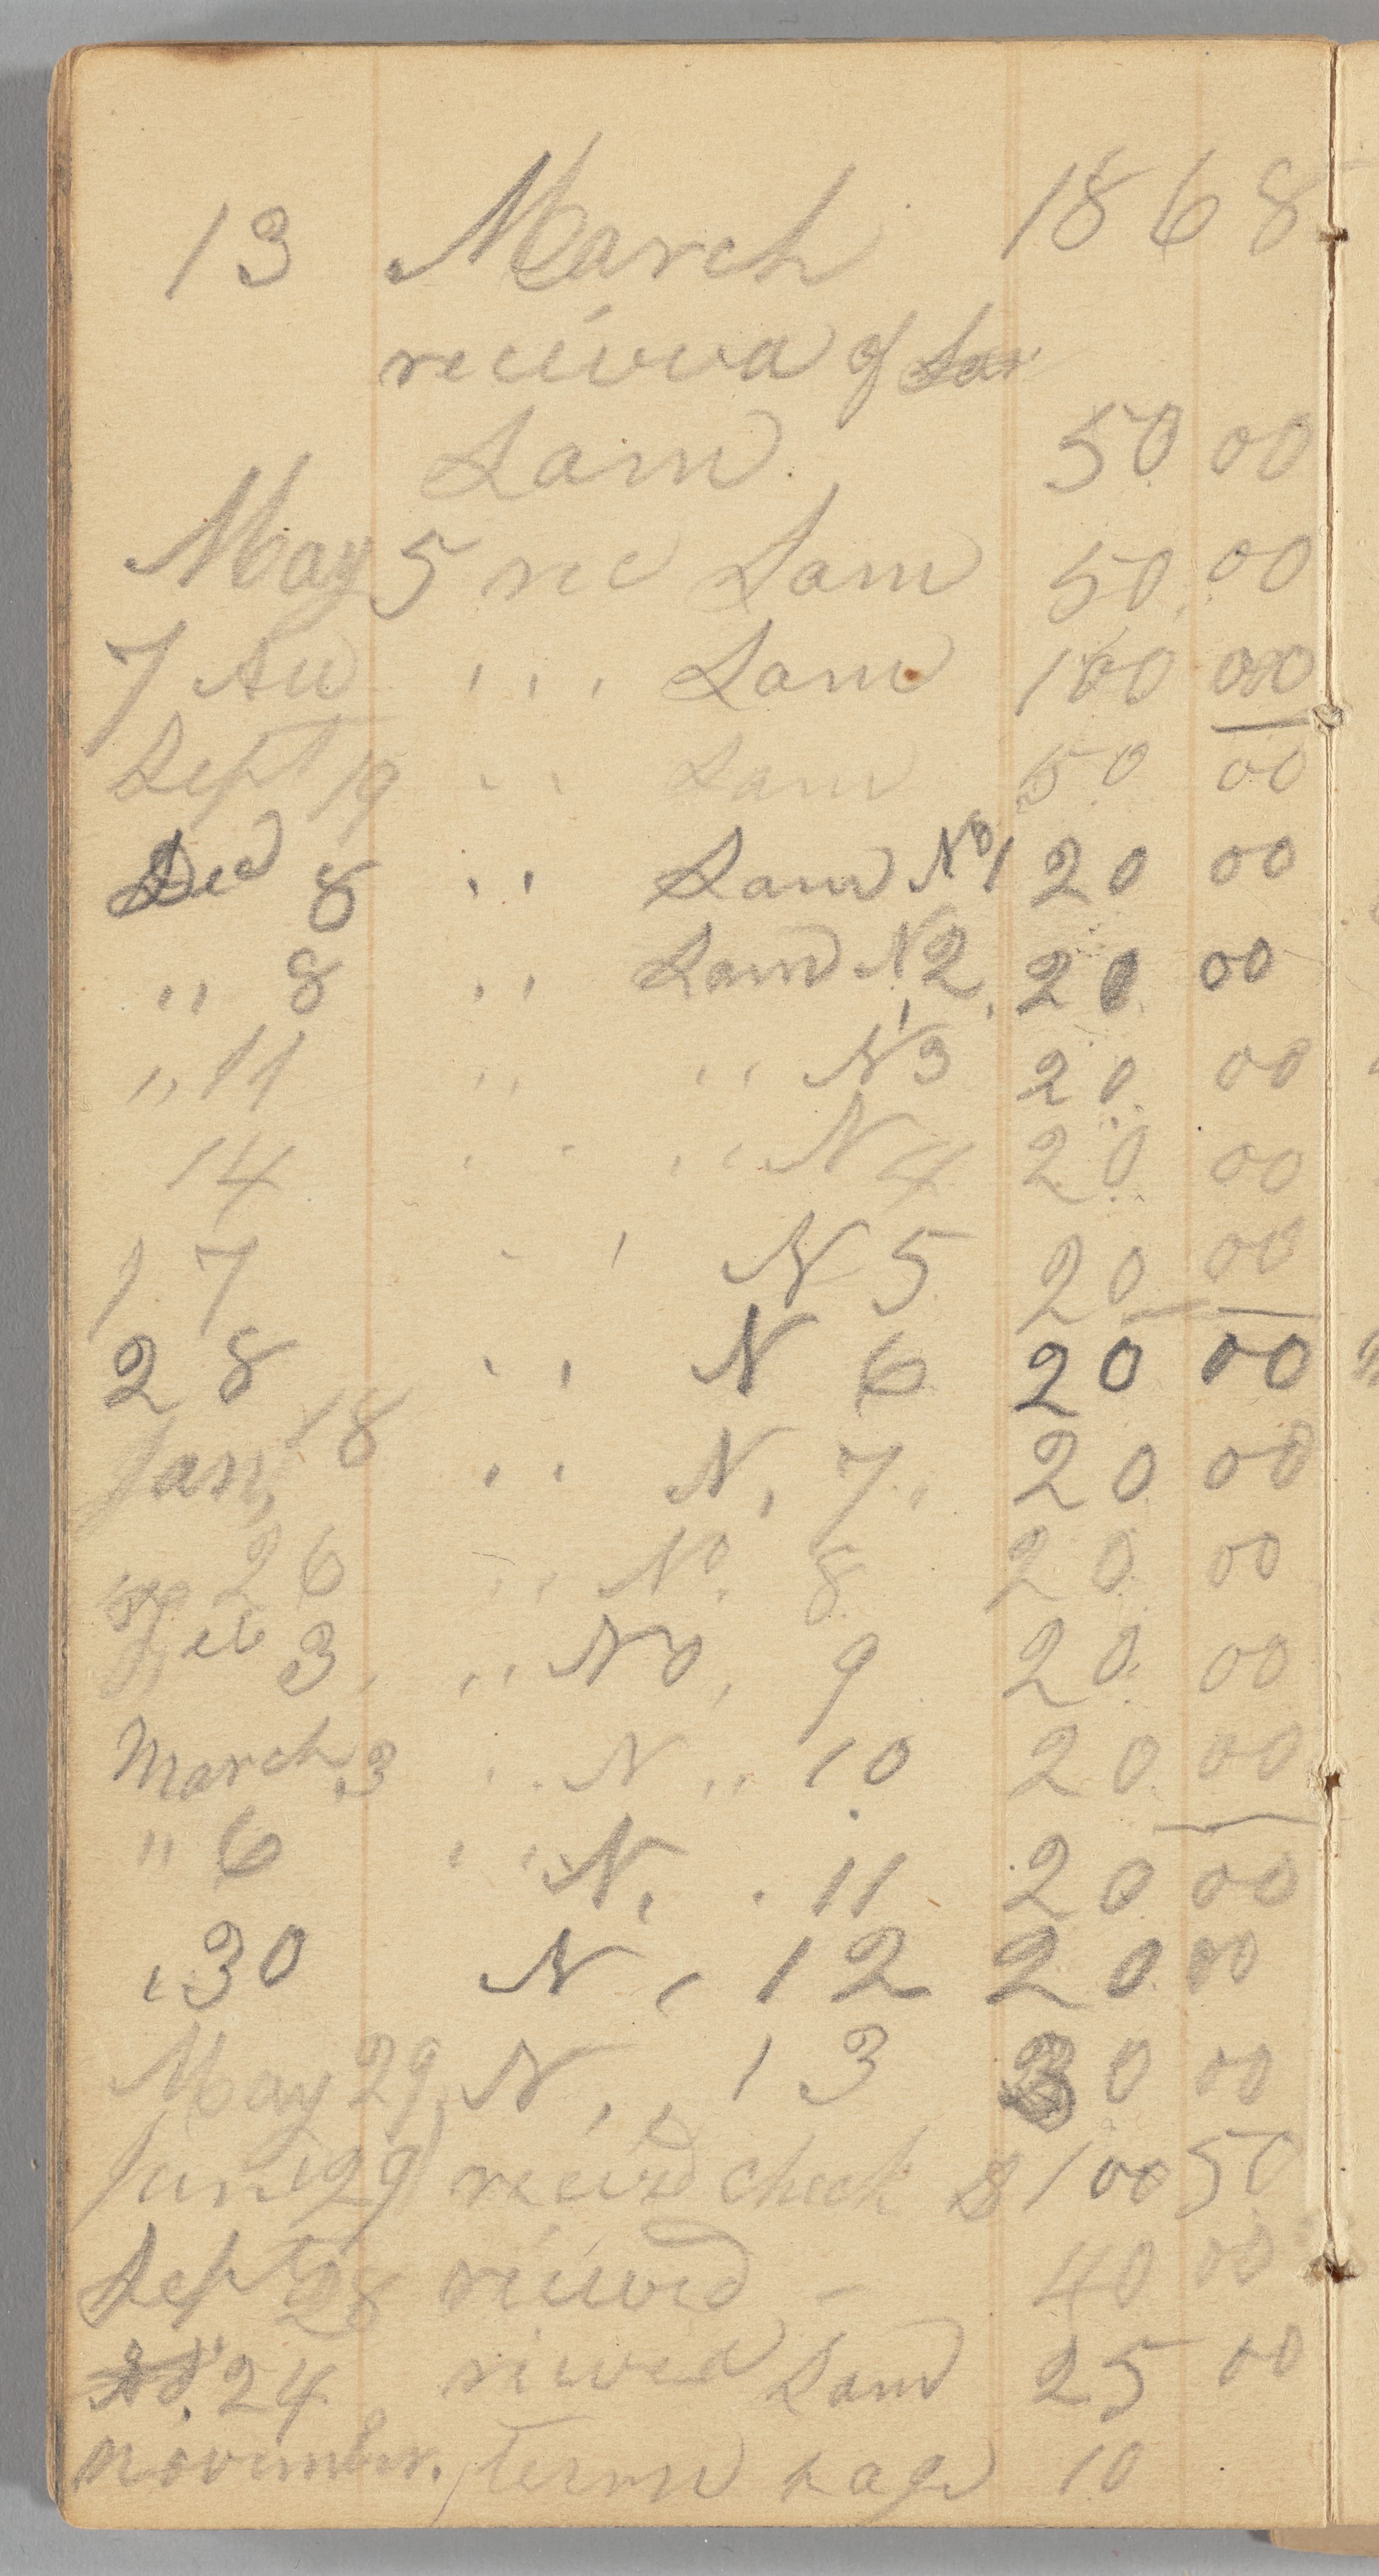 13 March 1868
recievd of
Sam 50 00
May 5 rec Sam 50 00
7 Au " " Sam 100 00
Sept 19 " " Sam 50 00
Dec 8 " " Sam No 1 20 00
" 8 " " Sam N 2 20 00
" 11 " " " N 3 20 00
14 " " " N 4 20 00
17 " " N 5 20 00
28 " " N 6 20 00
Jan, 18 " " N. 7. 20 00
26 " " No. 8 20 00
Feb 3 " " No, 9 20 00
March 3 " " N " 10 20 00
" 6 " " N. 11 20 00
" 30 N, 12 20 00
May 29, N. , 13 30 00
June 29 recievd check $ 100 50
Sept 28 recievd - 40 00
24 recieved Sam 25 00
november. term 10